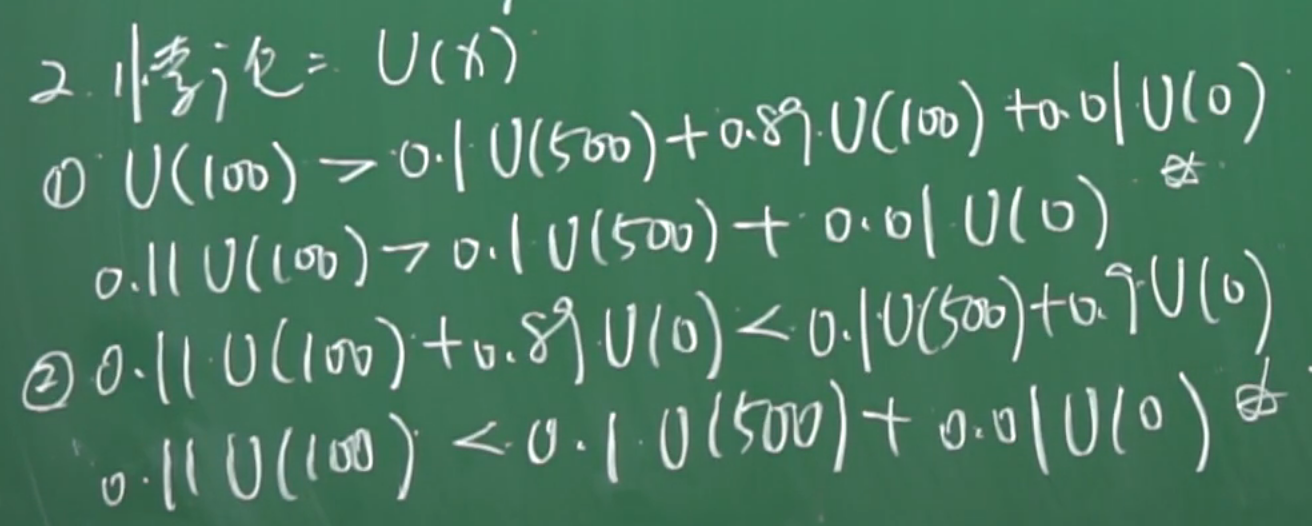 2. 悖论: U(x)
① U(100) > 0.1 U(500) + 0.89 U(100) + 0.01 U(0)
0.11 U(100) > 0.1 U(500) + 0.01 U(0)
② 0.11 U(100) + 0.89 U(0) < 0.1 U(500) + 0.9 U(0)
0.11 U(100) < 0.1 U(500) + 0.01 U(0)